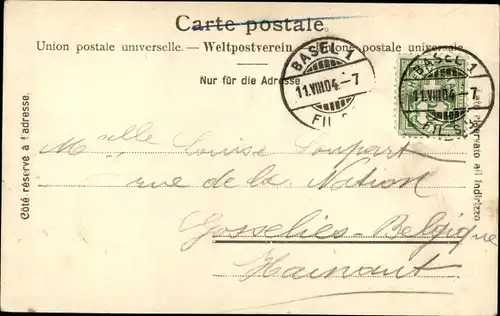 Carte postale.
Union postale universelle. — Weltpostverein — Unione postale universale
Nur für die Adresse
BASEL 1
11.VIII.04.-7
FIL
BASEL 1
11.VIII.04.-7
FIL
Côté réservé à l'adresse.
Lato riservato all'indirizzo
Melle Louise Soupart
rue de la Nation
Gosselies - Belgique
Hainaut